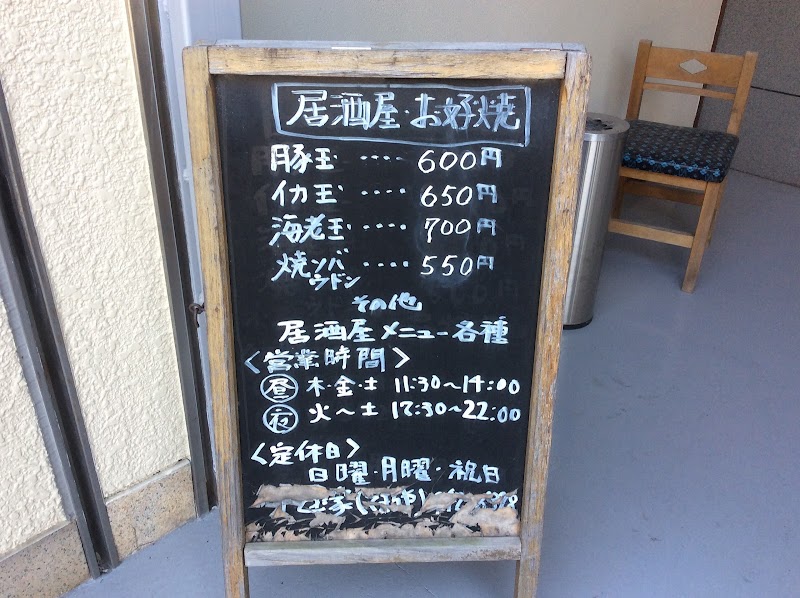 居酒屋 お好焼
豚玉 ···· 600円
イカ玉 ···· 650円
海老玉 ···· 700円
焼ソバ ···· 550円
ウドン
その他
居酒屋メニュー各種
〈営業時間〉
昼 木·金·土 11:30〜14:00
夜 火〜土 17:30〜22:00
〈定休日〉
日曜·月曜·祝日